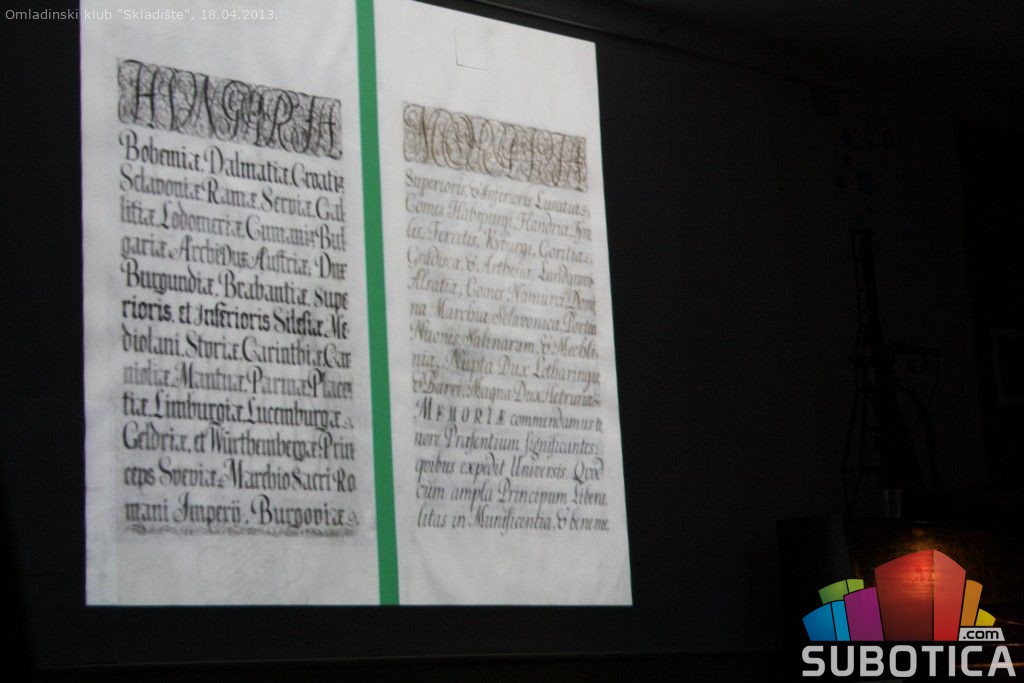 Omladinski klub "Skladište", 18.04.2013.
HUNGARIÆ
Bohemiæ, Dalmatiæ, Croatiæ
Sclavoniæ Ramæ, Serviæ, Gal
litiæ, Lodomeriæ, Cumaniæ Bul
gariæ, Archi Dux Austriæ, Dux
Burgundiæ, Brabantiæ, Supe
rioris, et Inferioris Silesiæ, Me
diolani, Styriæ, Carinthiæ, Car
nioliæ, Mantuæ, Parmæ, Placen
tiæ, Limburgiæ, Lucemburgæ,
Geldriæ, et Würthembergæ, Prin
ceps Sveviæ, Marchio Sacri Ro
mani Imperij, Burgoviæ,
MORAVIÆ
Superioris, & Inferioris Lusatiæ,
Comes Habspurgi, Flandriæ, Tyro
lis, Ferretis, Kyburgi, Goritiæ,
Gradiscæ, & Arthesiæ, Landgravia
Alsatiæ, Comes Namurci, Domi
na Marchiæ Sclavonicæ, Portus
Naonis, Salinarum, & Mechli
niæ, Nupta Dux Lotharingiæ,
& Barri, Magna Dux Hetruriæ,
MEMORIÆ commendamus te,
nore Præsentium significantes,
qvibus expedit Universis. Qvod
cum ampla Principum Libera,
litas in Munificentia, & bene me,
.com
SUBOTICA